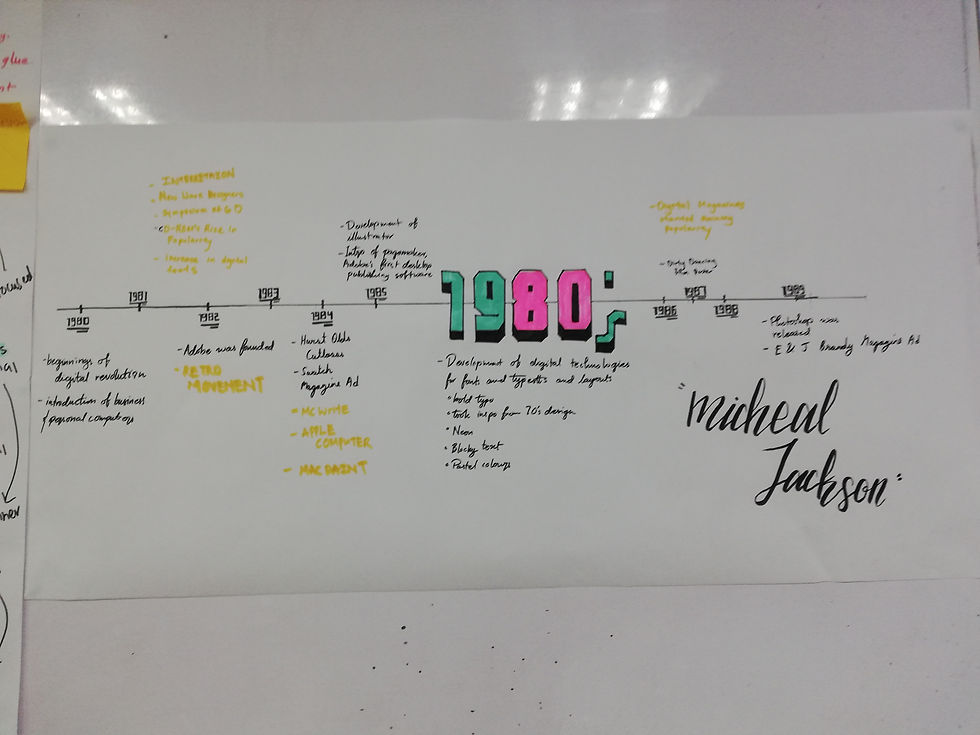 y.
glue
- INTERPRETAION
- New Wave Designers
- Symposium of GD
- CD-ROM's Rise in
Popularity
- Increase in digital
- Development of
illustrator
- Intro of pagemaker,
Adobe's first desktop
publishing software
- Digital Magazines
started gaining
popularity
- Dirty Dancing
1980
1981
1982
1983
1984
1985
1980's
1986
1987
1988
1989
- beginnings of
digital revolution
- introduction of business
& personal computers
- Adobe was founded
- RETRO
MOVEMENT
- Hurst Olds
Cutlasses
- Swatch
Magazine Ad
- MCWRITE
- APPLE
COMPUTER
- MACPAINT
- Development of digital technologies
for fonts and and layouts
• bold type
• took inspo from 70's design
• Neon
• Blocky text
• Pastel colours
- Photoshop was
released
- E & J Brandy Magazine Ad
"Micheal
Jackson"